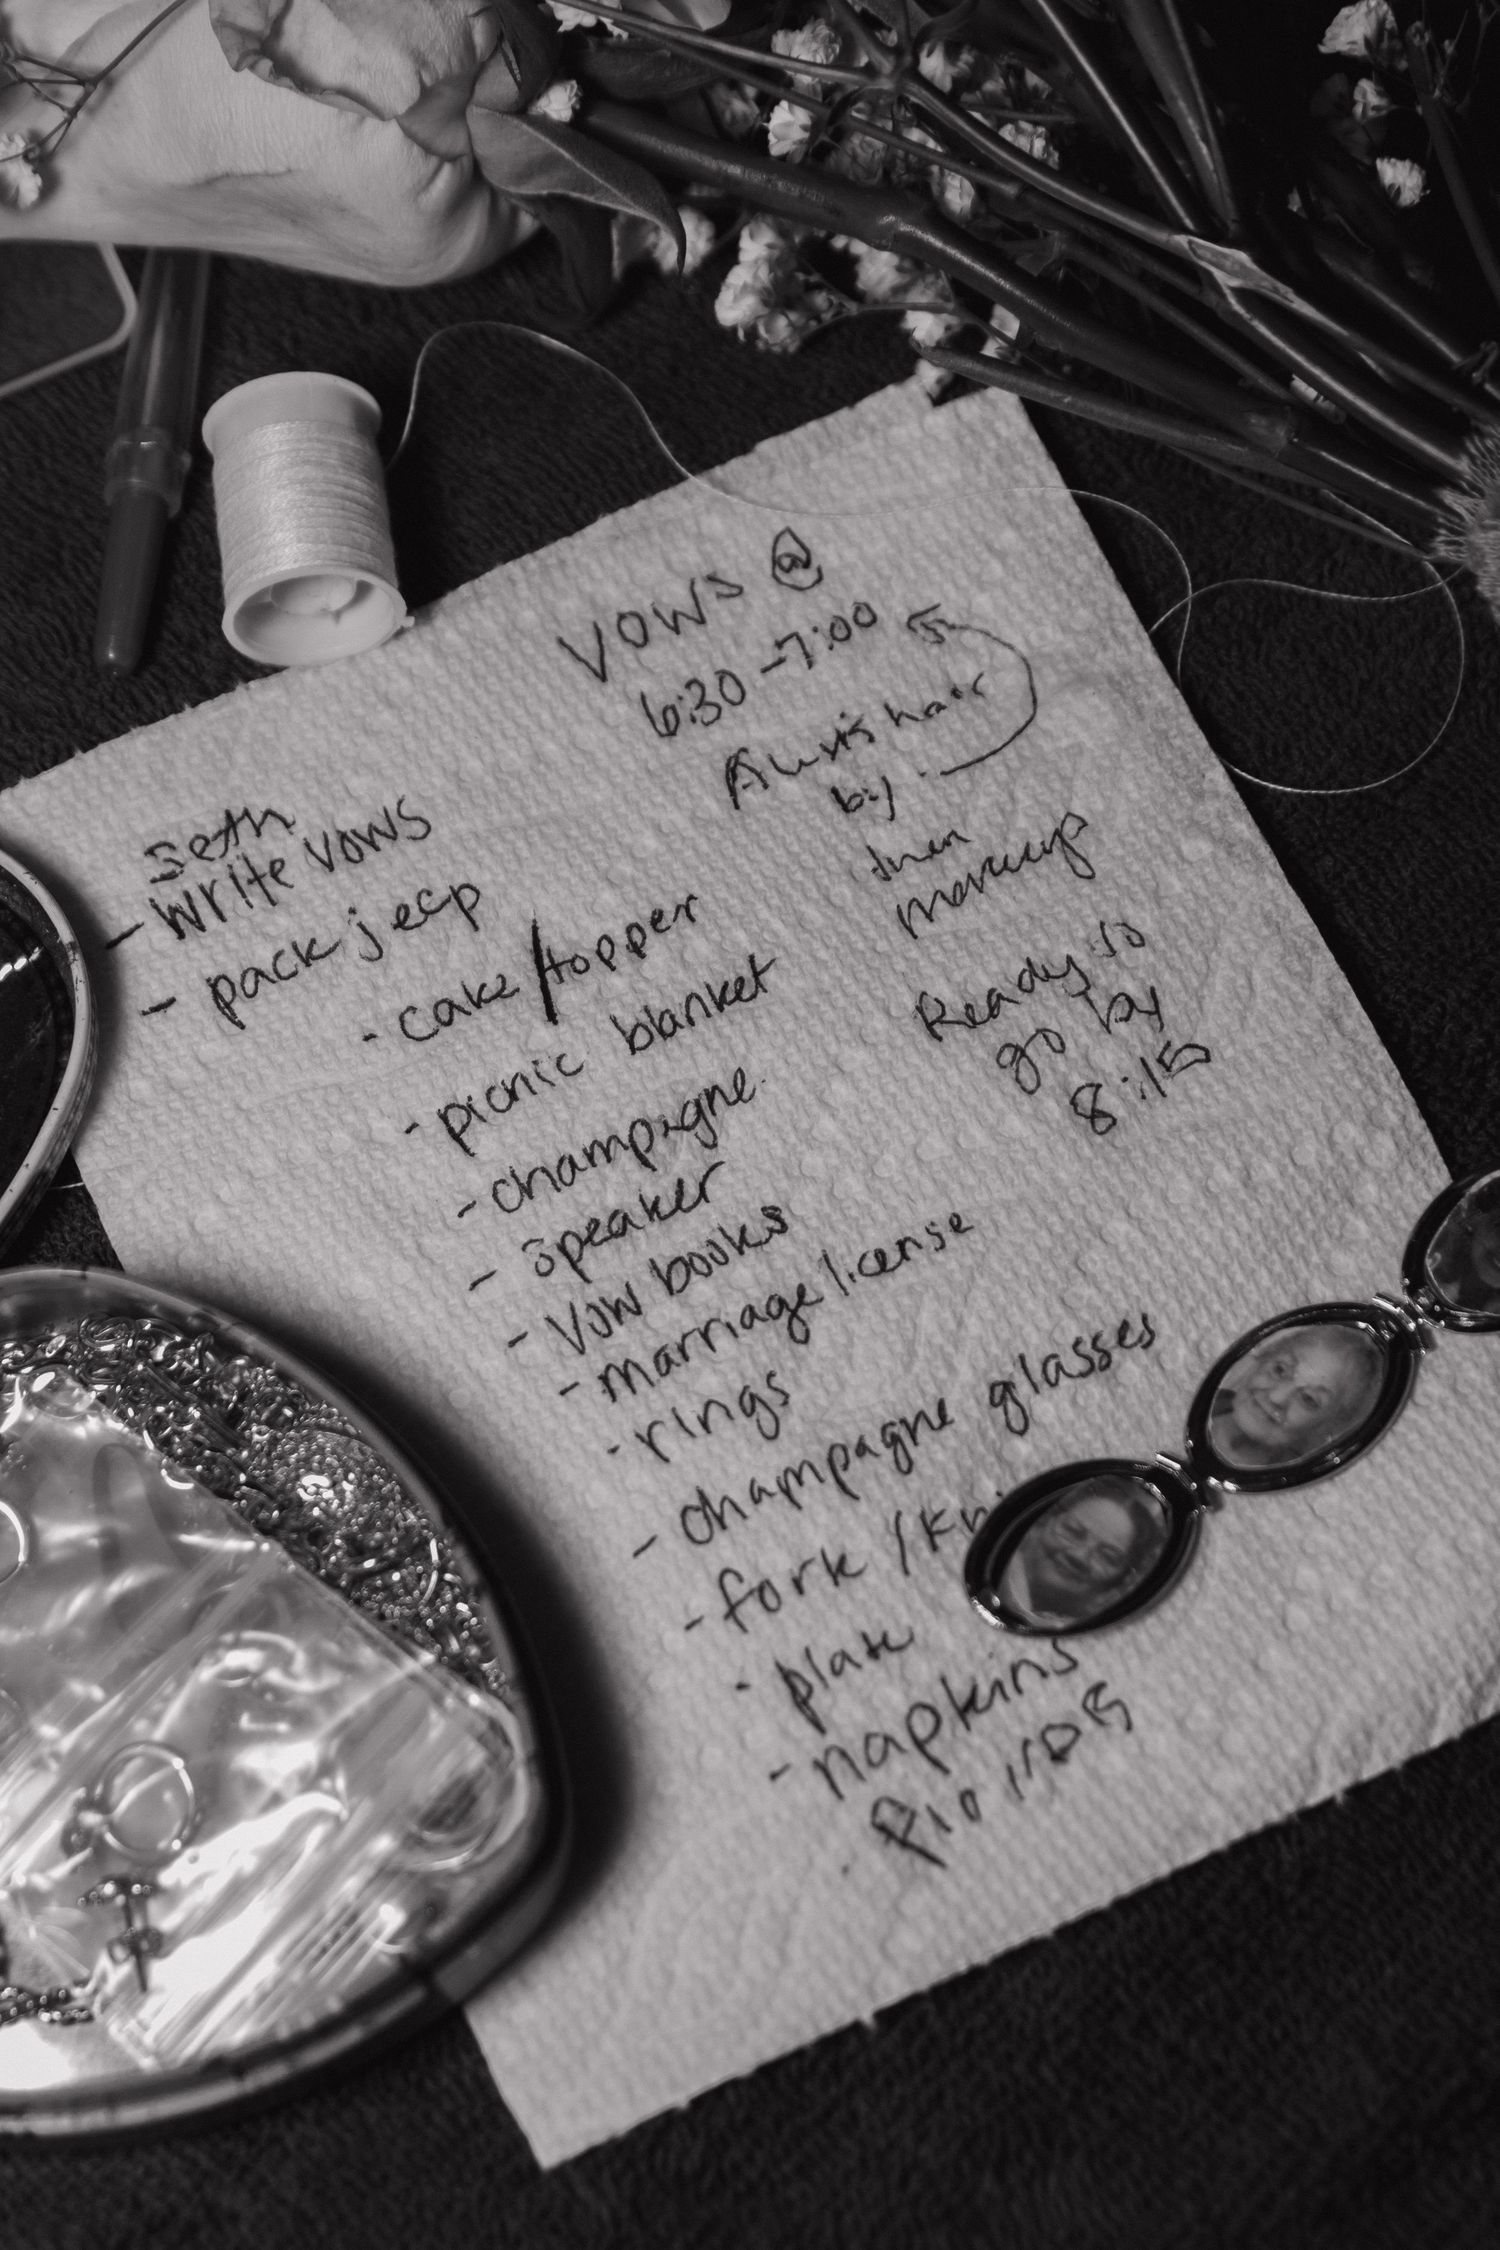 VOWS @
6:30-7:00
hair
by
then
makeup
Ready to
go by
8:15
Seth
- Write vows
- pack jeep
- cake/topper
- picnic blanket
- champagne
- speaker
- vow books
- marriage license
- rings
- champagne glasses
- fork / Kni
- plate
- napkins